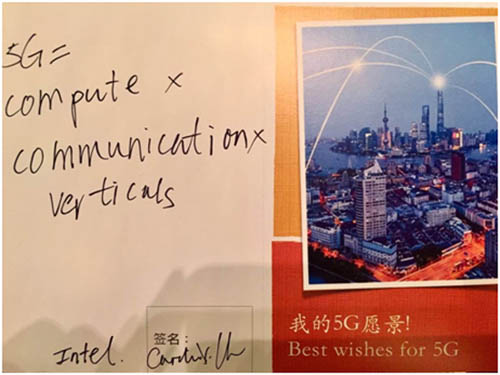 5G=
compute x
communication x
verticals
签名:
Intel.
我的5G愿景!
Best wishes for 5G